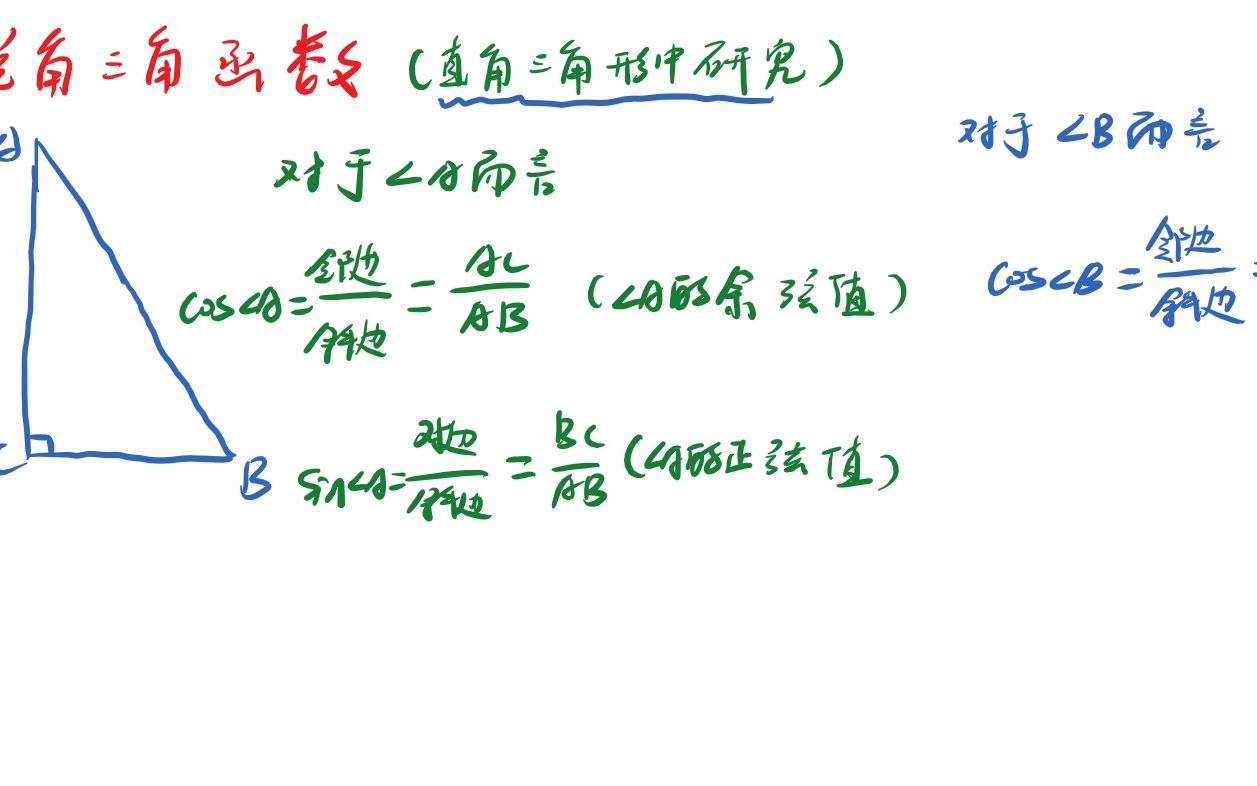 角三角函数（直角三角形中研究）
对于∠B而言
对于∠A而言
cos∠A=邻边/斜边=AC/AB （∠A的余弦值）
cos∠B=邻边/斜边
sin∠A=对边/斜边=BC/AB（∠A的正弦值）
A
B